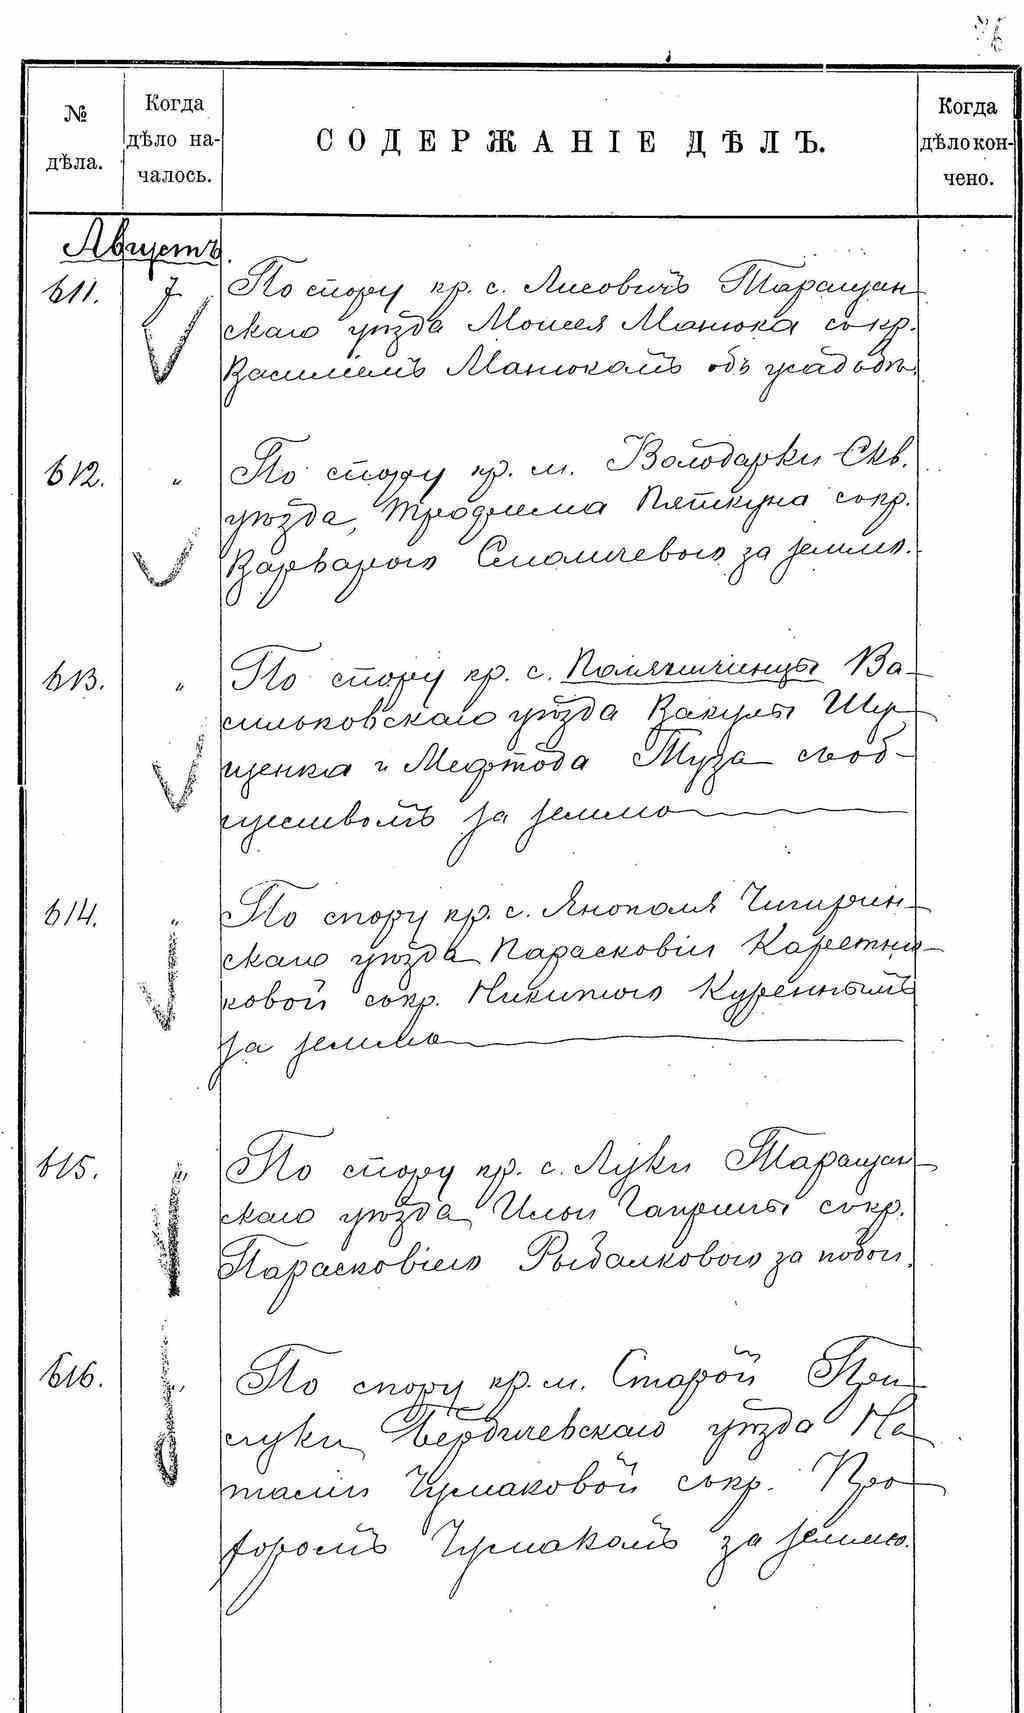 № дѣла.
Когда дѣло началось.
СОДЕРЖАНІЕ ДѢЛЪ.
Когда дѣло кончено.
Августъ.
611. 7 По спору кр. с. Лисовичъ Таращан-
скаго уѣзда Моисея Манюка съ кр.
Василіемъ Манюкомъ объ усадьбѣ.
612. " По спору кр. м. Володарки Скв.
уѣзда, Трофима Пяткуна съ кр.
Варварою за землю.
613. " По спору кр. с. Поляниченцы Ва-
сильковскаго уѣзда Вакулы
и Мефтода Туза съ об-
ществомъ за землю
614. " По спору кр. с. Янополя Чигирин-
скаго уѣзда Парасковіи Каретни-
ковой съ кр. Никитою Куреннымъ
за землю
615. " По спору кр. с. Луки Таращан-
скаго уѣзда Ильи съ кр.
Парасковіею Рыбалковою за побои.
616. " По спору кр. м. Старой При-
луки Бердичевскаго уѣзда На-
таліи Чумаковой съ кр. Про-
форомъ Чумакомъ за землю.